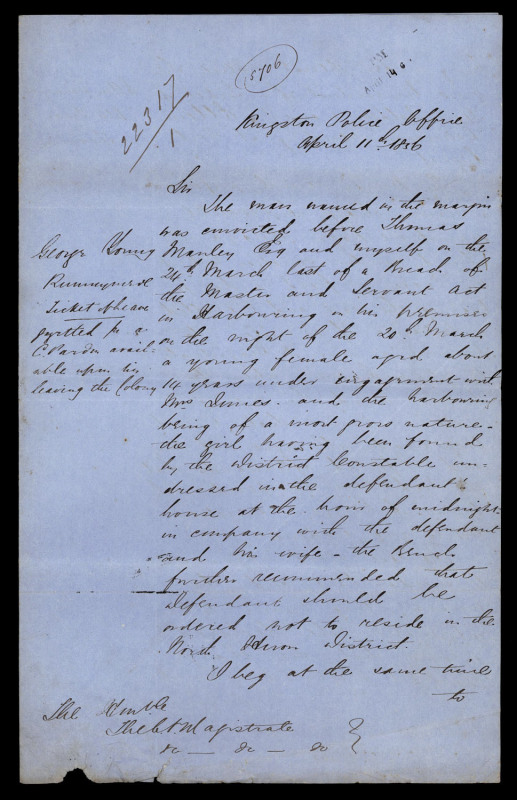 5706
April 14 6.
22317
1
Kingston Police Office
April 11th 1856
Sir
The man named in the margin
was convicted before Thomas
Manley Esq and myself on the
24th March last of a breach of
the Master and Servant Act
in Harbouring on his premises
on the night of the 20th March
a young female aged about
14 years under engagement with
Mrs Innes. and the harbouring
being of a most gross nature -
the girl having been found
by the District Constable un-
dressed in the defendant's
house at the hour of midnight
in company with the defendant
and his wife - the Bench
further recommended that
Defendant should be
ordered not to reside in the
North Huon District.
I beg at the same time
to
George Young
Runnymede
Ticket of leave
gazetted for a
C. Pardon avail-
able upon his
leaving the Colony
The Honble
The Ct Magistrate
&c — &c — &c